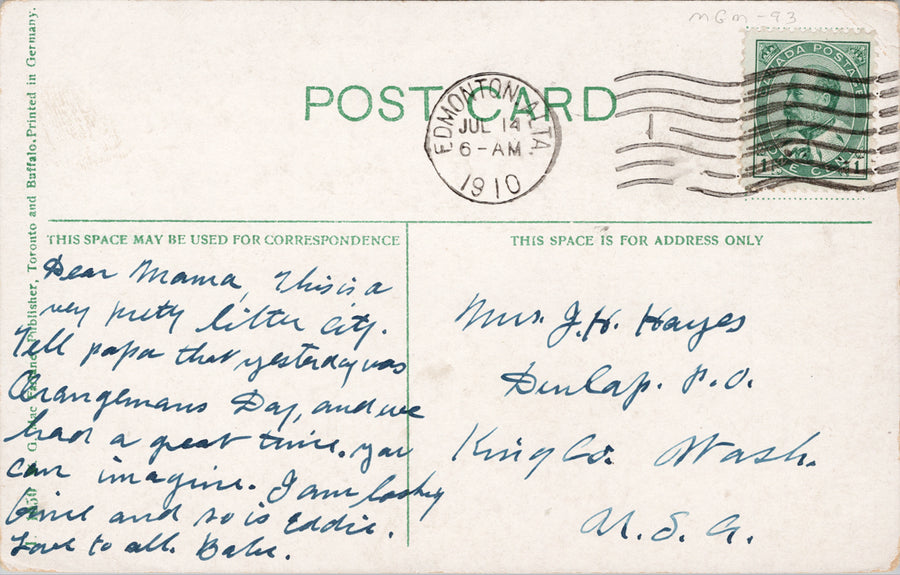 MGM-93
POST CARD
EDMONTON, ALTA
JUL 14
6-AM
1910
CANADA POSTAGE
ONE CENT
THIS SPACE MAY BE USED FOR CORRESPONDENCE
Dear Mama, This is a
very pretty little city.
Tell papa that yesterday was
Orangemans Day, and we
had a great time. you
can imagine. I am
fine and so is Eddie.
Love to all. Babe.
THIS SPACE IS FOR ADDRESS ONLY
Mrs. J. H. Hayes
Dunlap. P.O.
King Co. Wash.
U. S. A.
Publisher, Toronto and Buffalo. Printed in Germany.